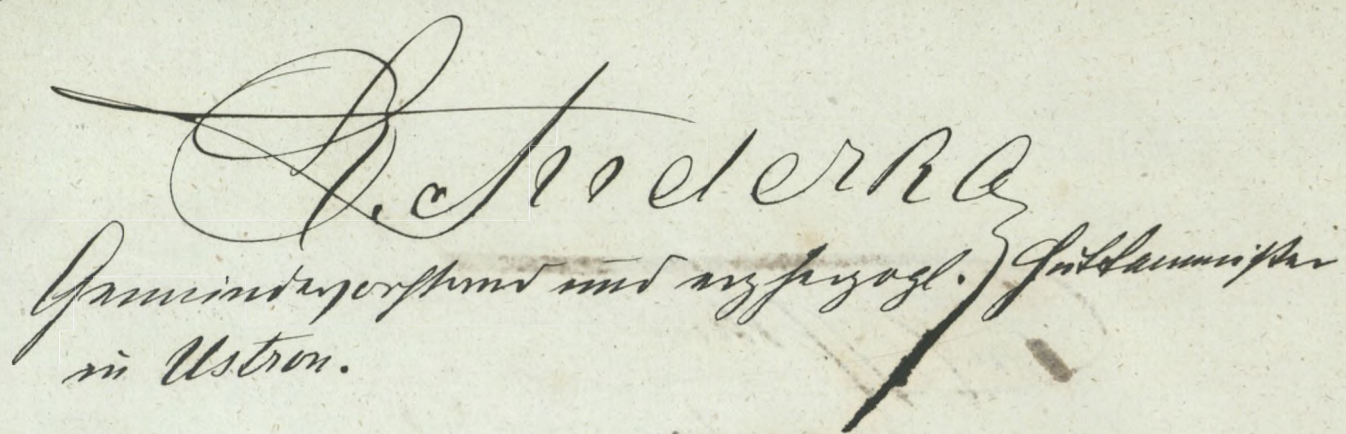 Gemeindevorstand und erzherzogl. Hüttenmeister
in Ustron.